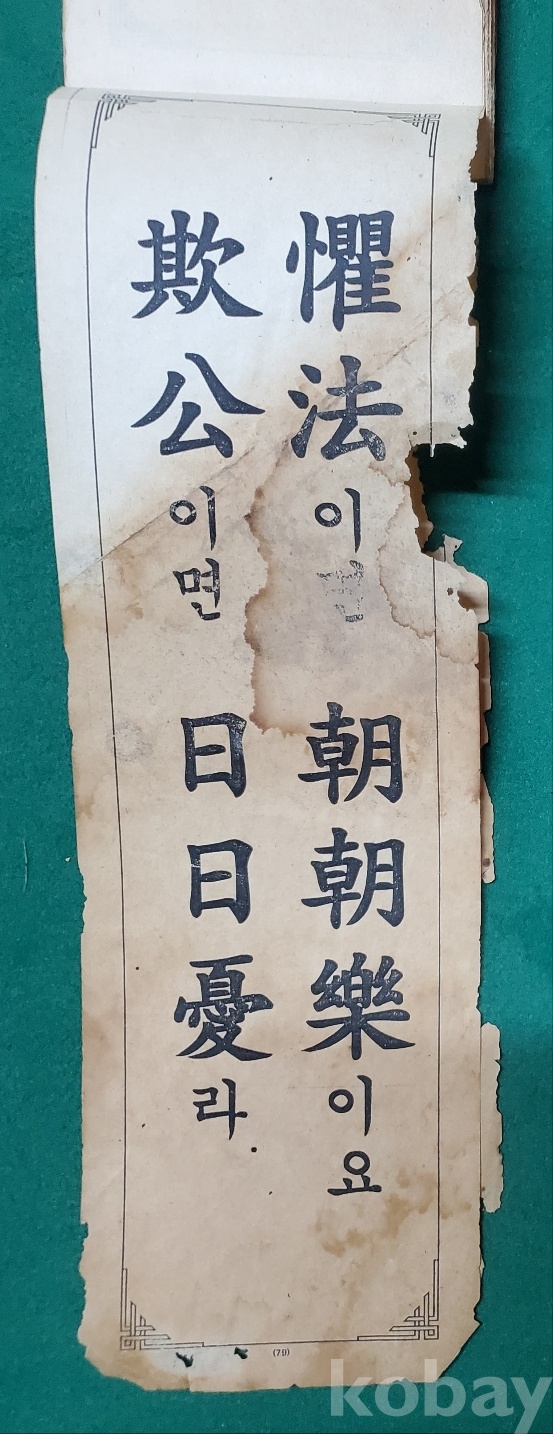 懼法이면 朝朝樂이요
欺公이면 日日憂라
(79)
kobay